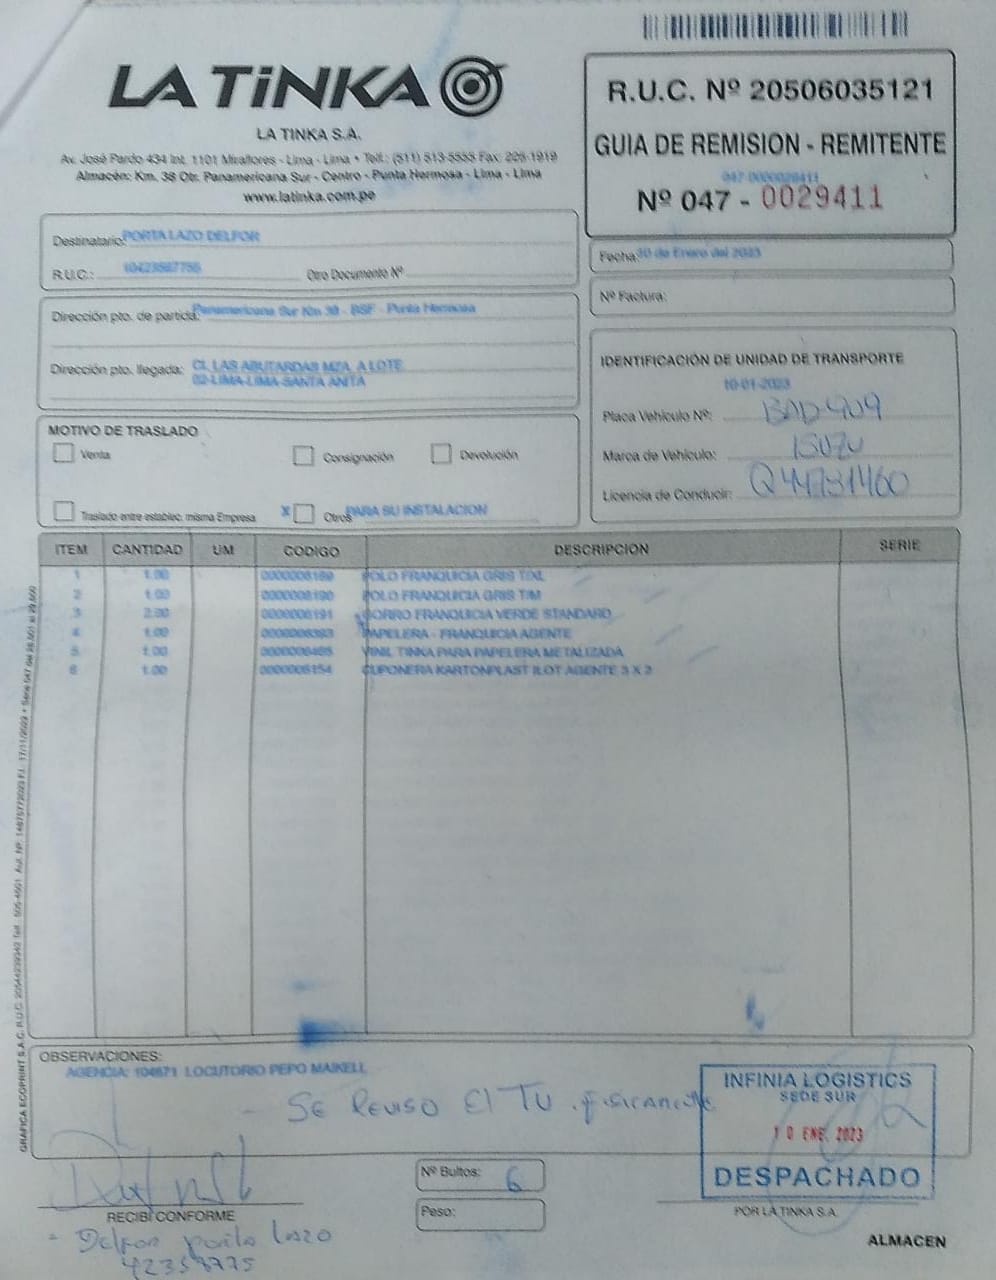 LA TiNKA
LA TINKA S.A.
Av. José Pardo 434 Int. 1101 Miraflores - Lima - Lima • Telf.: (511) 513-5555 Fax: 225-1919
Almacén: Km. 38 Otr. Panamericana Sur - Centro - Punta Hermosa - Lima - Lima
www.latinka.com.pe
R.U.C. Nº 20506035121
GUIA DE REMISION - REMITENTE
047-0000029411
Nº 047 - 0029411
Destinatario: PORTA LAZO DELFOR
R.U.C.: Otro Documento Nº
Fecha: de Enero del 2023
Nº Factura:
Dirección pto. de partida: Panamericana Sur Km 38 - BSF - Punta Hermosa
Dirección pto. llegada: CL LAS ABUTARDAS MZA. A LOTE
02-LIMA-LIMA-SANTA ANITA
IDENTIFICACIÓN DE UNIDAD DE TRANSPORTE
10-01-2023
Placa Vehículo Nº: BAD-909
Marca de Vehículo: ISUZU
Licencia de Conducir: Q44731460
MOTIVO DE TRASLADO
Venta Consignación Devolución
Traslado entre establec. misma Empresa X Otros PARA SU INSTALACION
ITEM CANTIDAD UM CODIGO DESCRIPCION SERIE
1 1.00 0000008189 POLO FRANQUICIA GRIS T/XL
2 1.00 0000008190 POLO FRANQUICIA GRIS T/M
3 2.00 0000008191 GORRO FRANQUICIA VERDE STANDARD
4 1.00 PAPELERA - FRANQUICIA AGENTE
5 1.00 VINIL TINKA PARA PAPELERA METALIZADA
6 1.00 0000008154 CUPONERA KARTONPLAST ILOT AGENTE 3 X 2
OBSERVACIONES:
AGENCIA: 104671 LOCUTORIO PEPO MAIKELL
- SE REVISO El TU . fisicamente
INFINIA LOGISTICS
SEDE SUR
10 ENE. 2023
DESPACHADO
Nº Bultos: 6
Peso:
RECIBI CONFORME
POR LA TINKA S.A.
- Delfor porta Lazo
ALMACEN